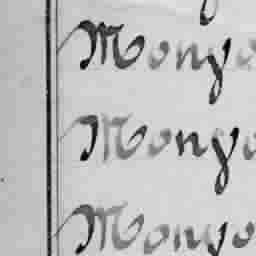 Mongo
Mongo
Mongo